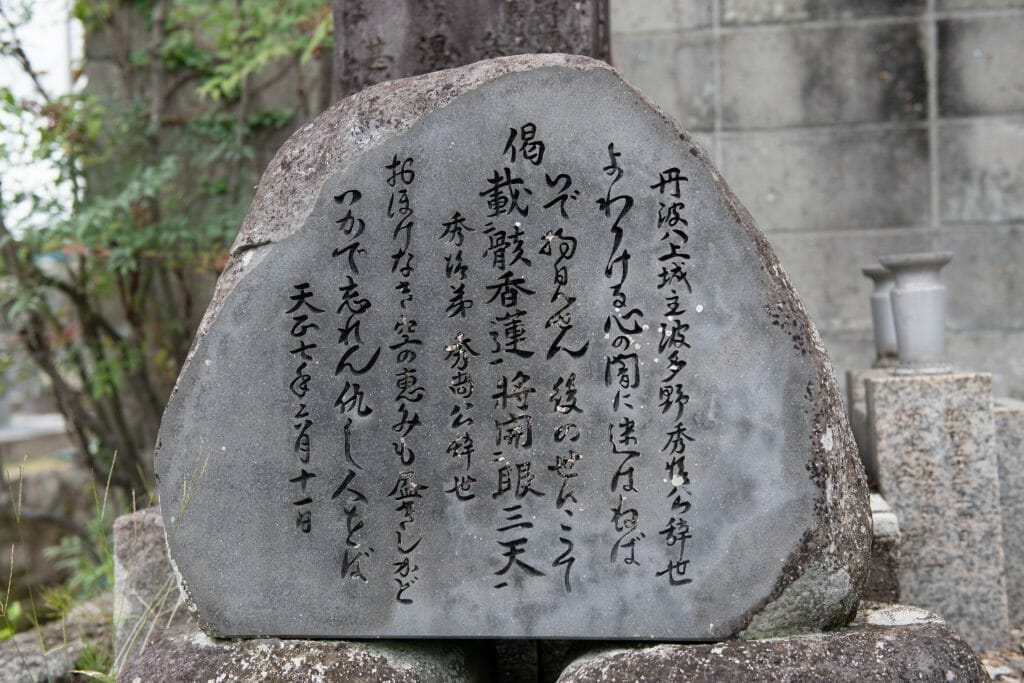 丹波八上城主波多野秀治公辞世
よわりける心の闇に迷はねば
いで物見せん後の世にこそ
偈
載二骸香蓮一将開二眼三天一
秀治弟 秀尚公辞世
おほけなき空の恵みも盡きしかど
いかで忘れん仇し人をば
天正七年六月十一日